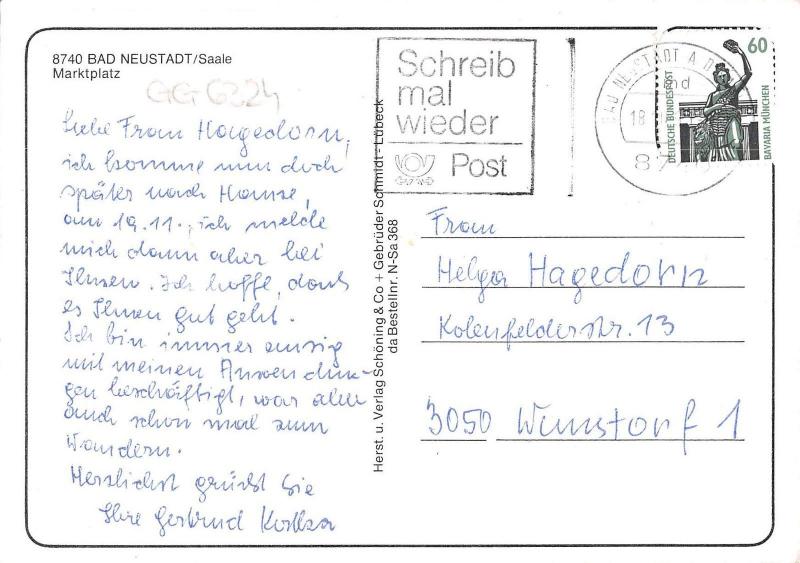 8740 BAD NEUSTADT/Saale
Marktplatz
GG 6324
Liebe Frau Hagedorn,
ich komme nun doch
später nach Hause,
am 19.11., ich melde
mich dann aber bei
Ihnen. Ich hoffe, daß
es Ihnen gut geht.
Ich bin immer emsig
mit meinen Anwendun-
gen beschäftigt, war aber
auch schon mal zum
Wandern.
Herzlichst grüßt Sie
Ihre Gertrud
Herst. u. Verlag Schöning & Co + Gebrüder Schmidt - Lübeck
da Bestellnr. N-Sa 368
Schreib
mal
wieder
Post
BAD NEUSTADT A D
18
60
DEUTSCHE BUNDESPOST
BAVARIA MÜNCHEN
Frau
Helga Hagedorn
Kolenfelderstr. 13
3050 Wunstorf 1